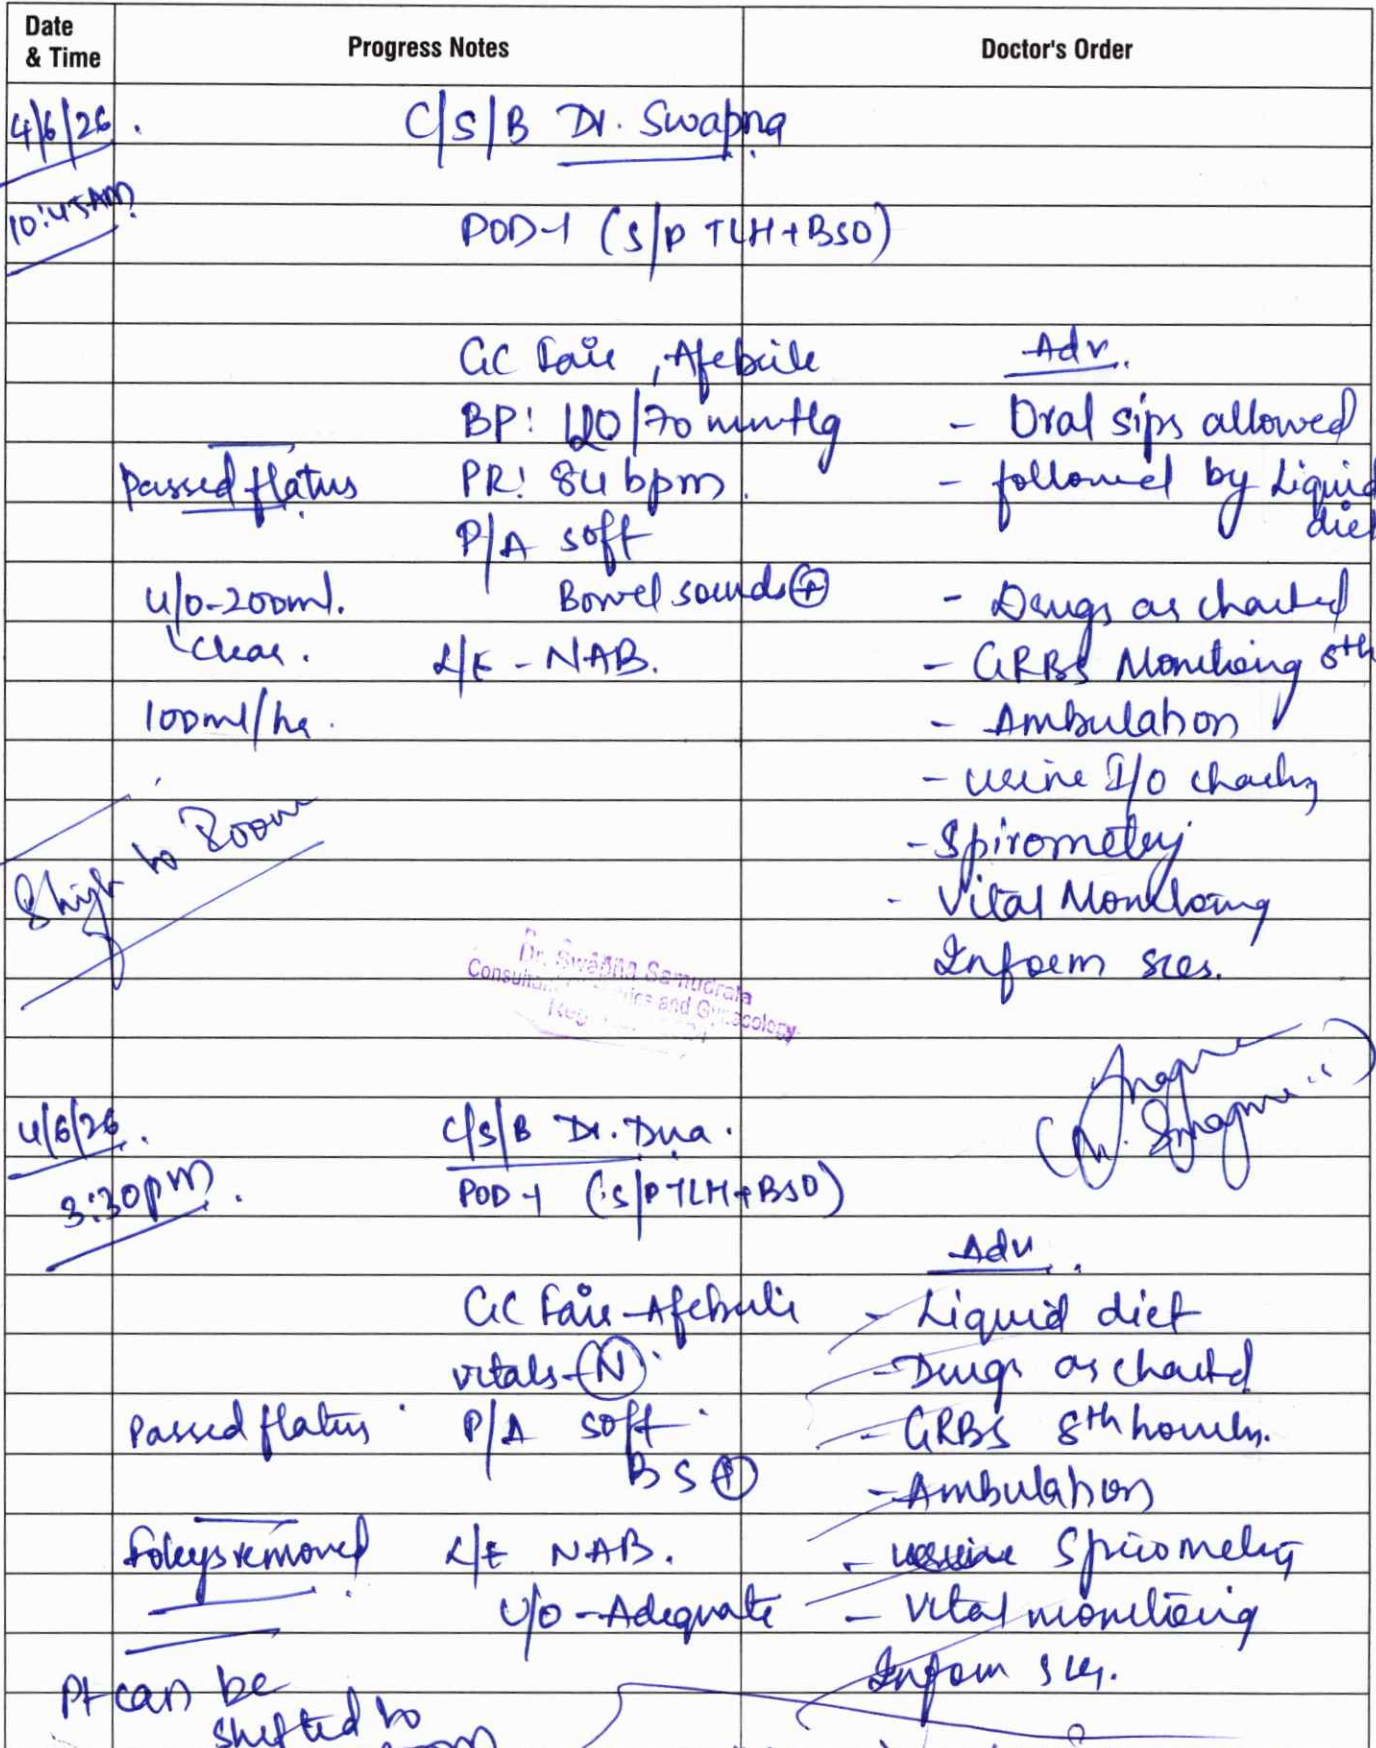 Date & Time
Progress Notes
Doctor's Order
4/6/26.
C/S/B Dr. Swapna
10:45AM
POD-1 (S/P TLH+BSO)
GC Fair, Afebrile
Adv.
BP: 120/70 mmHg
- Oral sips allowed
Passed flatus
PR: 84 bpm.
- followed by Liquid diet
P/A soft
U/o-200ml.
Bowel sounds ⊕
- Drugs as charted
clear.
L/E - NAB.
- GRBS Monitoring 8th
100ml/hr.
- Ambulation
- urine I/O charting
Shift to Room
- Spirometry
- Vital Monitoring
Inform sos.
Dr. Swapna Samudrala
Consultant and Gynecology
4/6/26.
C/S/B Dr.
3:30pm.
POD-1 (S/P TLH+BSO)
Adv.
GC Fair - Afebrile
- Liquid diet
vitals - (N)
- Drugs as charted
Passed flatus
P/A soft
- GRBS 8th hourly.
BS ⊕
- Ambulation
Foleys removed
L/E NAB.
- Spirometry
U/O - Adequate
- Vital monitoring
Inform sos.
Pt can be
shifted to
room